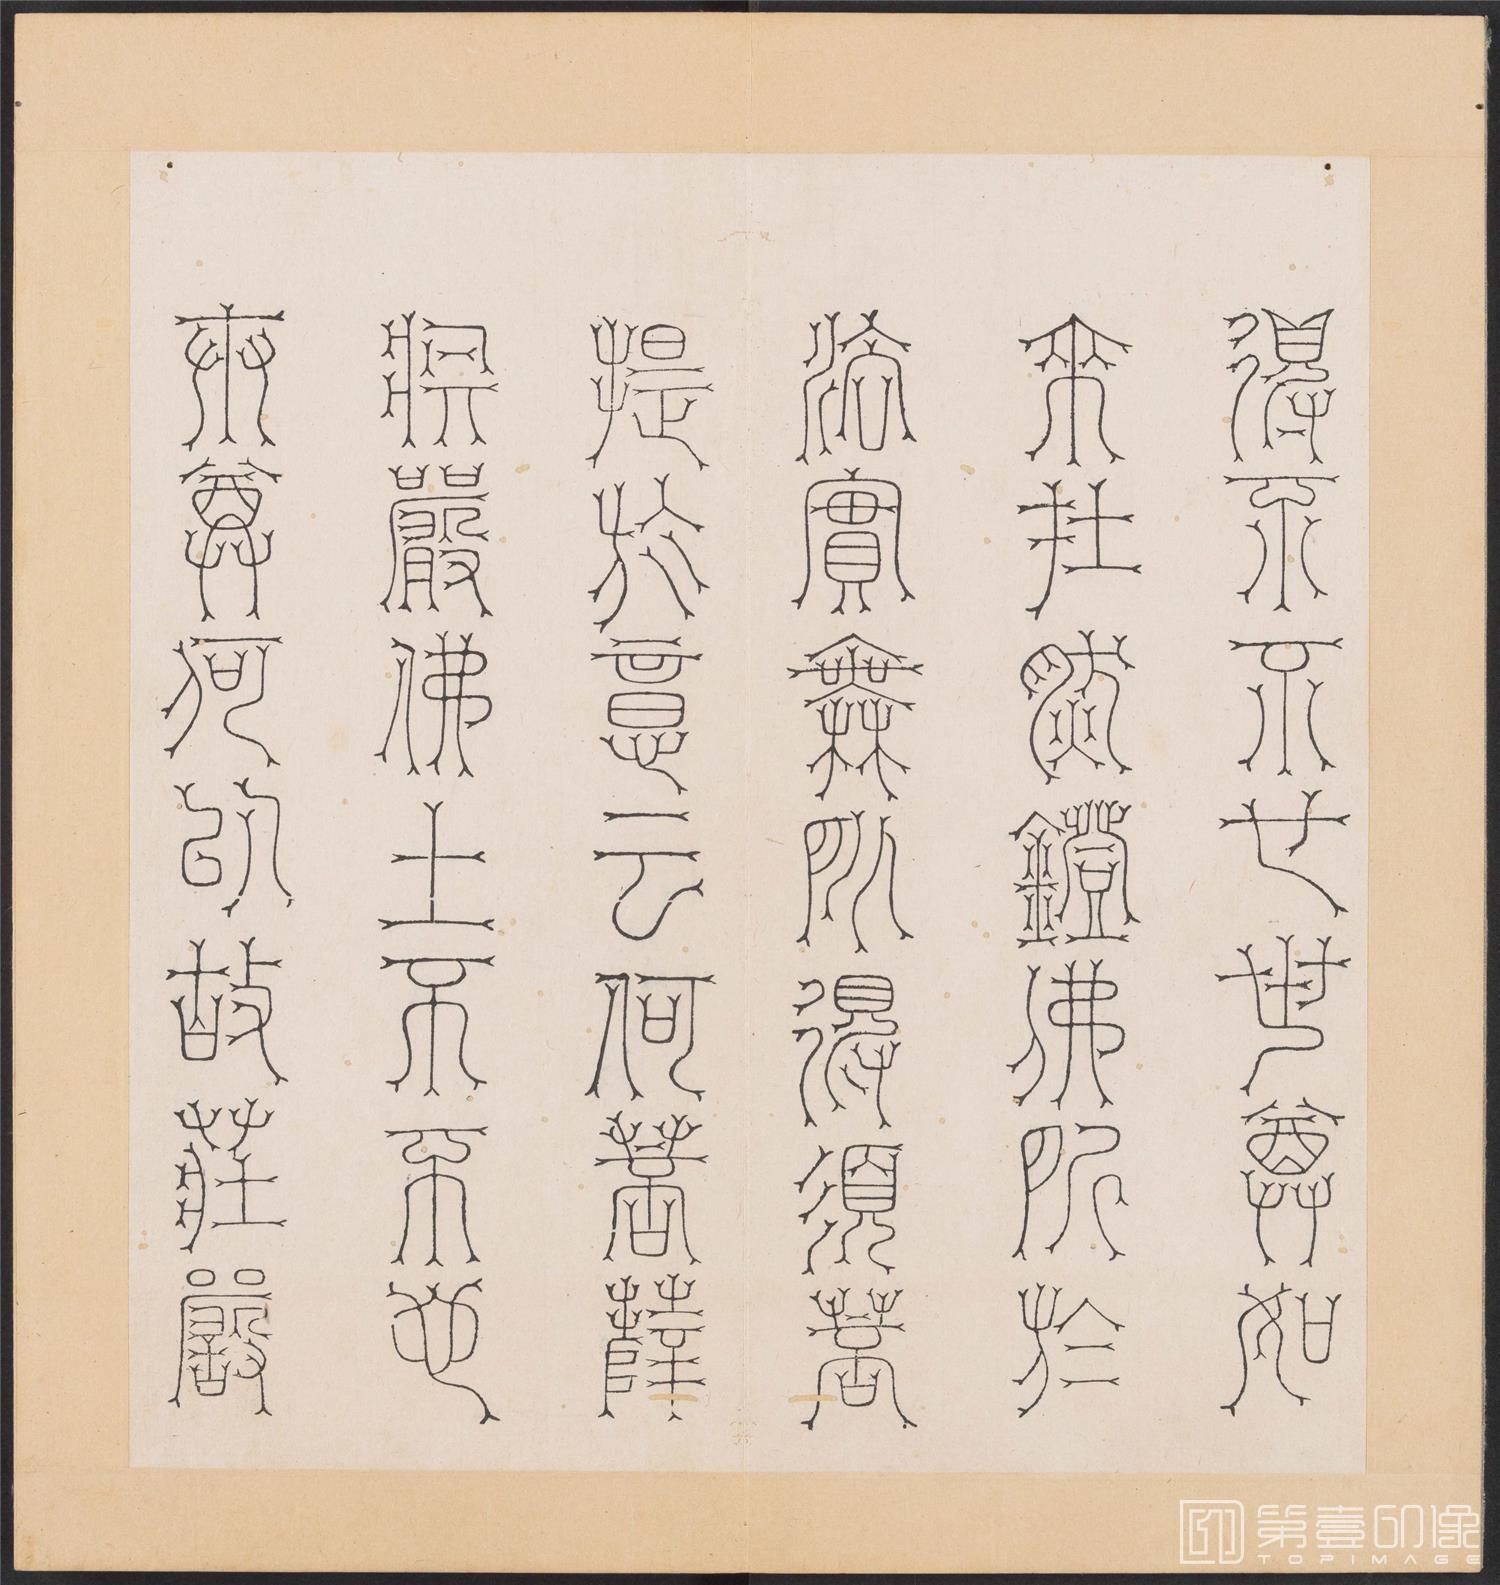 得不不也世尊如
來在然鐙佛所於
法實無所得須菩
提於意云何菩薩
莊嚴佛土不不也
世尊何以故莊嚴
第壹印像
TOPIMAGE